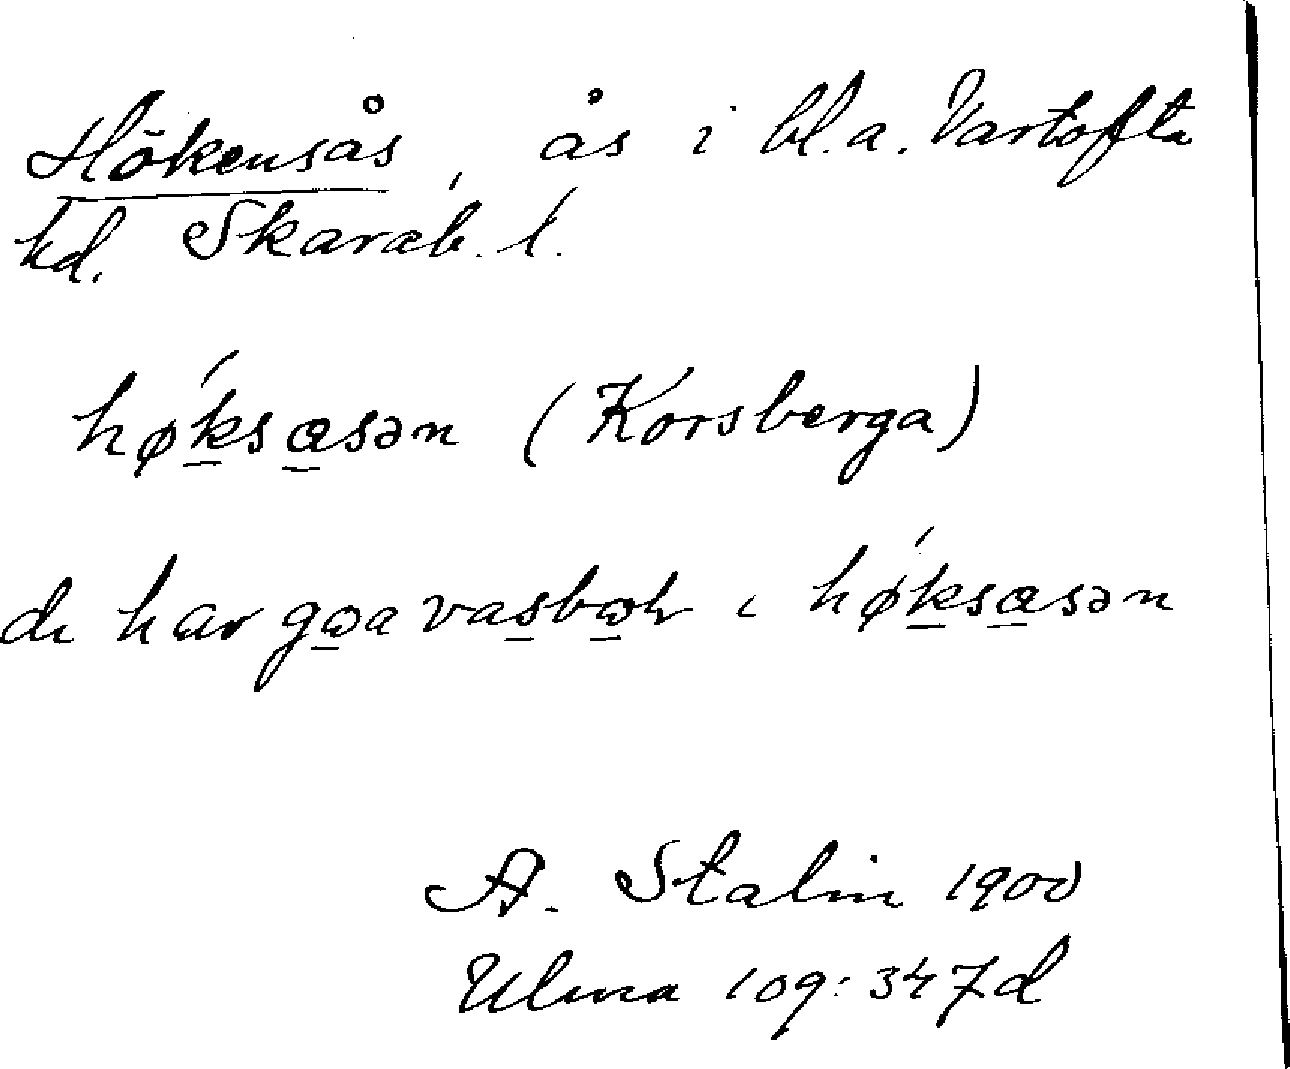 Hökensås, ås i bl.a. Vartofta
hd. Skarab. l.
høksasən (Korsberga)
de har gɷa vasbɷtr i høksasən
A. Stalin 1900
Ulma 109:347d